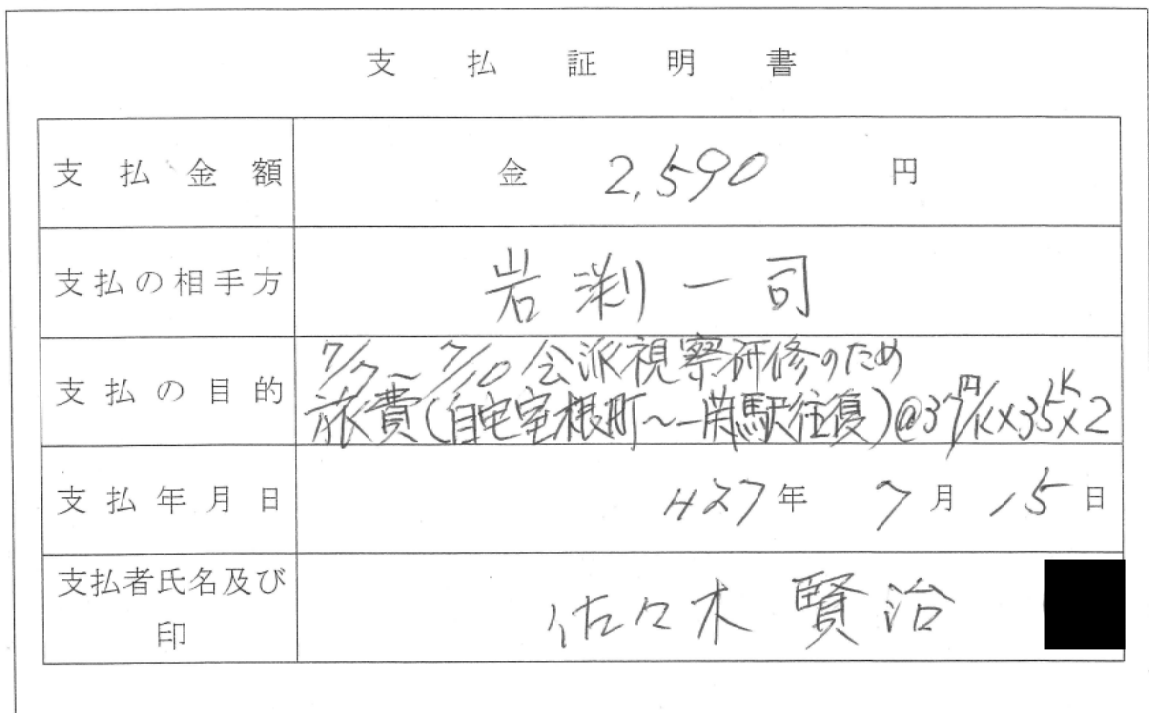 支払証明書
支払金額 金 2,590 円
支払の相手方 岩渕一司
支払の目的 7/7~7/10 会派視察研修のため
旅費(自宅室根町~一関駅往復)@37円/K×35K×2
支払年月日 H27年 7月 15日
支払者氏名及び 佐々木 賢治
印